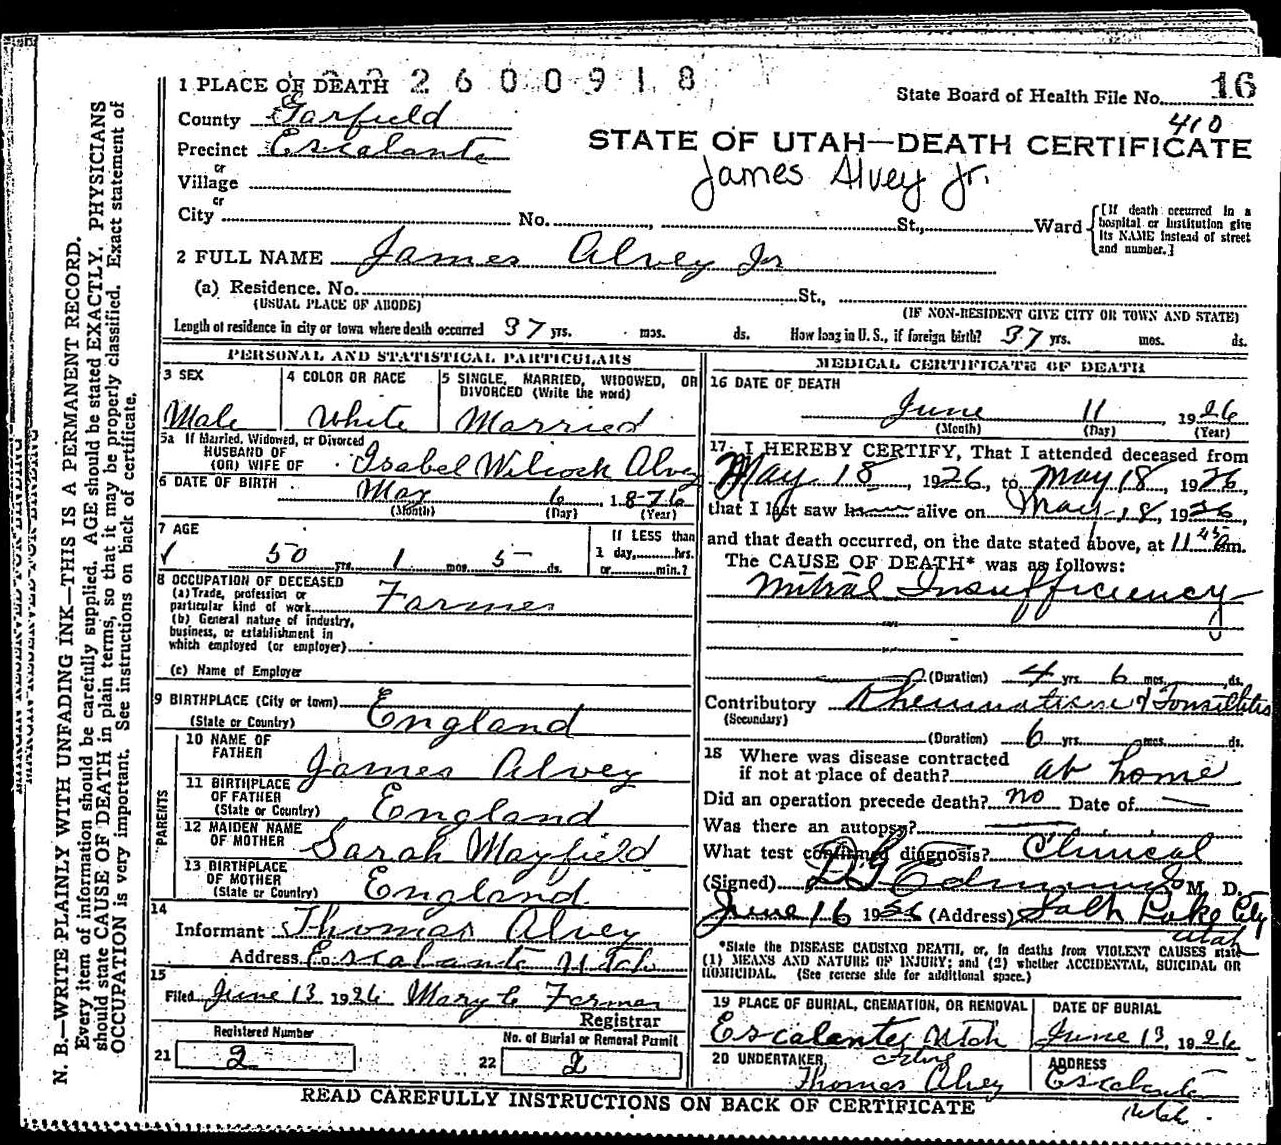 2600918
16
1 PLACE OF DEATH
State Board of Health File No.
410
County Garfield
STATE OF UTAH—DEATH CERTIFICATE
Precinct Escalante
James Alvey Jr.
or
Village
or
City No. St., Ward
[If death occurred in a hospital or institution give its NAME instead of street and number.]
2 FULL NAME James Alvey Jr
(a) Residence. No. St.,
(USUAL PLACE OF ABODE) (IF NON-RESIDENT GIVE CITY OR TOWN AND STATE)
Length of residence in city or town where death occurred 37 yrs. mos. ds. How long in U.S., if foreign birth? 37 yrs. mos. ds.
PERSONAL AND STATISTICAL PARTICULARS
3 SEX
Male
4 COLOR OR RACE
White
5 SINGLE, MARRIED, WIDOWED, OR
DIVORCED (Write the word)
Married
5a If Married, Widowed, or Divorced
HUSBAND OF
(OR) WIFE OF Isabel Wilcock Alvey
6 DATE OF BIRTH
May 6 1876
(Month) (Day) (Year)
7 AGE
50 yrs. 1 mos. 5 ds.
If LESS than
1 day, hrs.
or min.?
8 OCCUPATION OF DECEASED
(a) Trade, profession or
particular kind of work Farmer
(b) General nature of industry,
business, or establishment in
which employed (or employer)
(c) Name of Employer
9 BIRTHPLACE (City or town)
(State or Country) England
PARENTS
10 NAME OF
FATHER James Alvey
11 BIRTHPLACE
OF FATHER
(State or Country) England
12 MAIDEN NAME
OF MOTHER Sarah Mayfield
13 BIRTHPLACE
OF MOTHER
(State or Country) England
14
Informant Thomas Alvey
Address Escalante Utah
15
Filed June 13 1926 Mary C Farmer
Registrar
Registered Number
21 2
No. of Burial or Removal Permit
22 2
MEDICAL CERTIFICATE OF DEATH
16 DATE OF DEATH
June 11 1926
(Month) (Day) (Year)
17 I HEREBY CERTIFY, That I attended deceased from
May 18, 1926, to May 18, 1926,
that I last saw him alive on May 18, 1926,
and that death occurred, on the date stated above, at 11 45 am.
The CAUSE OF DEATH* was as follows:
Mitral Insufficiency
(Duration) 4 yrs. 6 mos. ds.
Contributory Rheumatism & Tonsilitis
(Secondary)
(Duration) 6 yrs. mos. ds.
18 Where was disease contracted
if not at place of death? at home
Did an operation precede death? no Date of
Was there an autopsy?
What test confirmed diagnosis? Clinical
(Signed) M. D.
June 16 1926 (Address) Salt Lake City
Utah
*State the DISEASE CAUSING DEATH, or, in deaths from VIOLENT CAUSES state
(1) MEANS AND NATURE OF INJURY; and (2) whether ACCIDENTAL, SUICIDAL OR
HOMICIDAL. (See reverse side for additional space.)
19 PLACE OF BURIAL, CREMATION, OR REMOVAL
Escalante, Utah
DATE OF BURIAL
June 13, 1926
20 UNDERTAKER
Acting
Thomas Alvey
ADDRESS
Escalante
Utah
READ CAREFULLY INSTRUCTIONS ON BACK OF CERTIFICATE
N. B.—WRITE PLAINLY WITH UNFADING INK—THIS IS A PERMANENT RECORD.
Every item of information should be carefully supplied. AGE should be stated EXACTLY. PHYSICIANS
should state CAUSE OF DEATH in plain terms, so that it may be properly classified. Exact statement of
OCCUPATION is very important. See instructions on back of certificate.